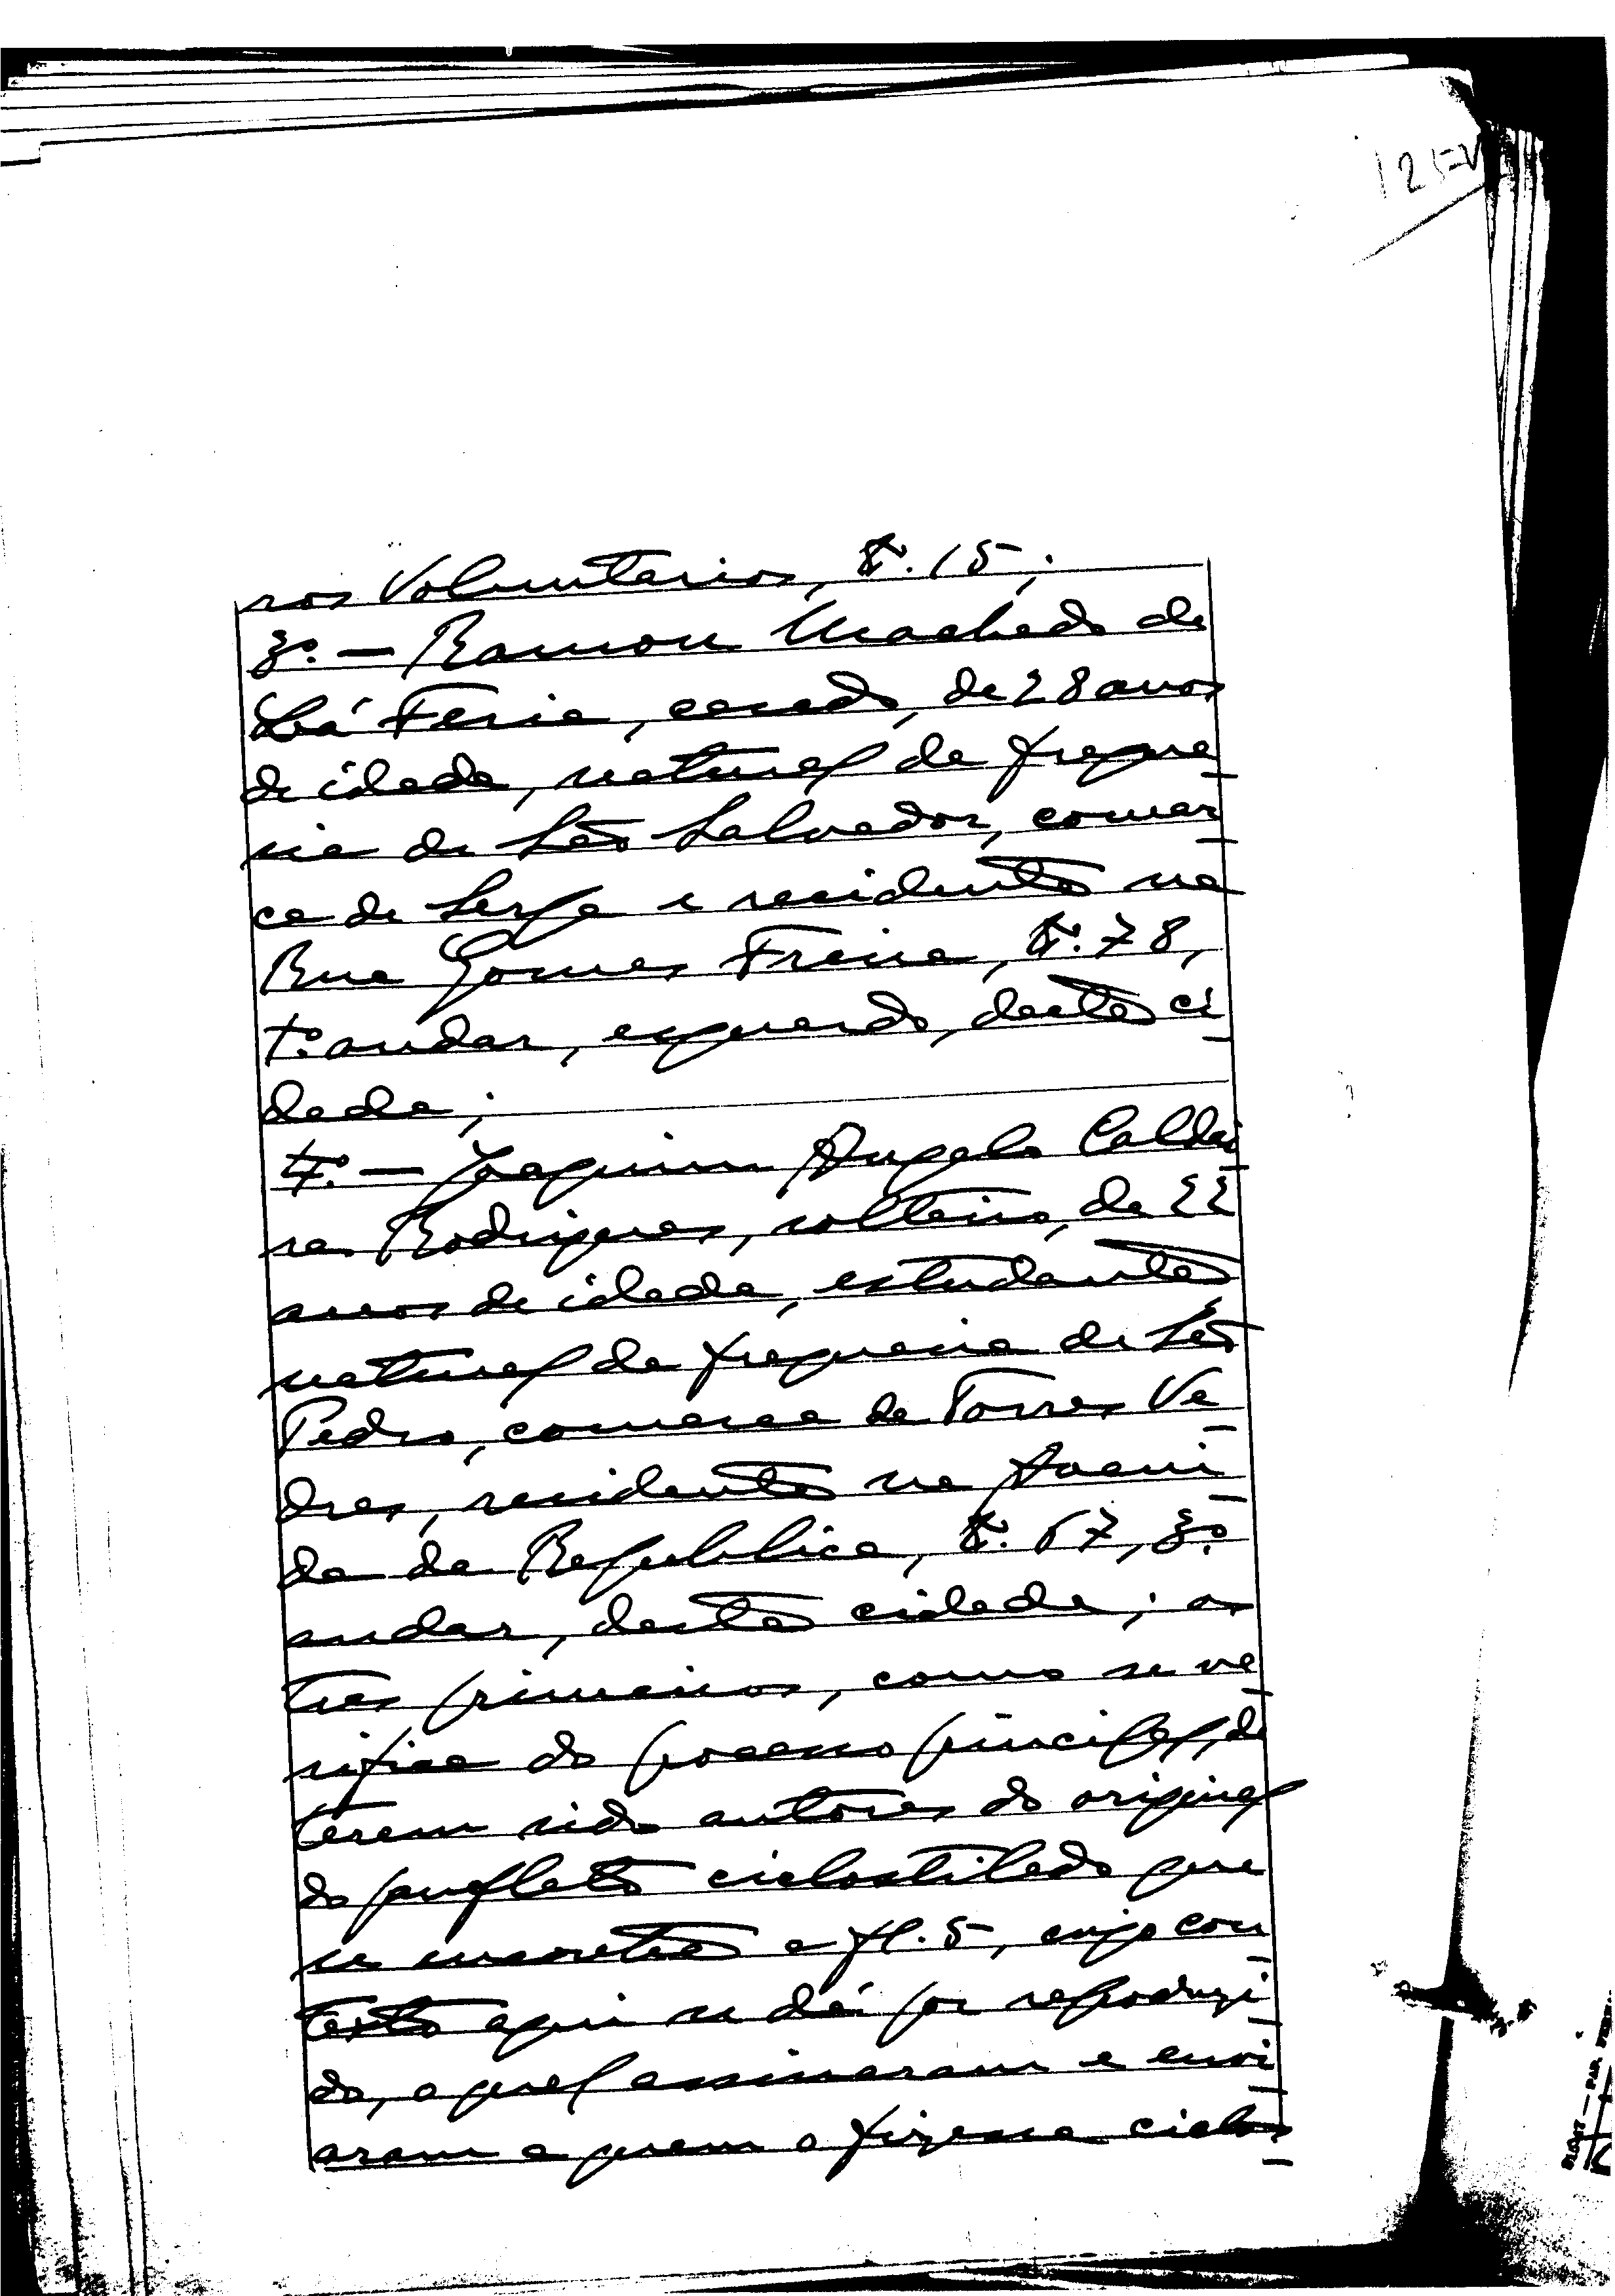 125-V
ros Voluntarios, n.º 15;
3.º — Ramon Machado de
Lá Feria, casado, de 28 anos
de idade, natural da fregue
sia de São Salvador, comar
ca de Serpa e residente na
Rua Gomes Freire, n.º 78,
1.º andar, esquerdo, desta ci
dade;
4.º — Joaquim Angelo Caldei
ra Rodrigues, solteiro, de 22
anos de idade, estudante
natural da freguesia de São
Pedro, comarca de Torres Ve
dras, residente na Aveni
da da Republica, n.º 67, 3.º
andar, desta cidade; os
tres primeiros, como se ve
rifica do processo principal, de
terem sido autores do original
do panfleto ciclostilado que
se encontra a fl. 5, cujo con
texto aqui se dá por reproduzi
do, o qual assinaram e envi
aram a quem o fizesse ciclos